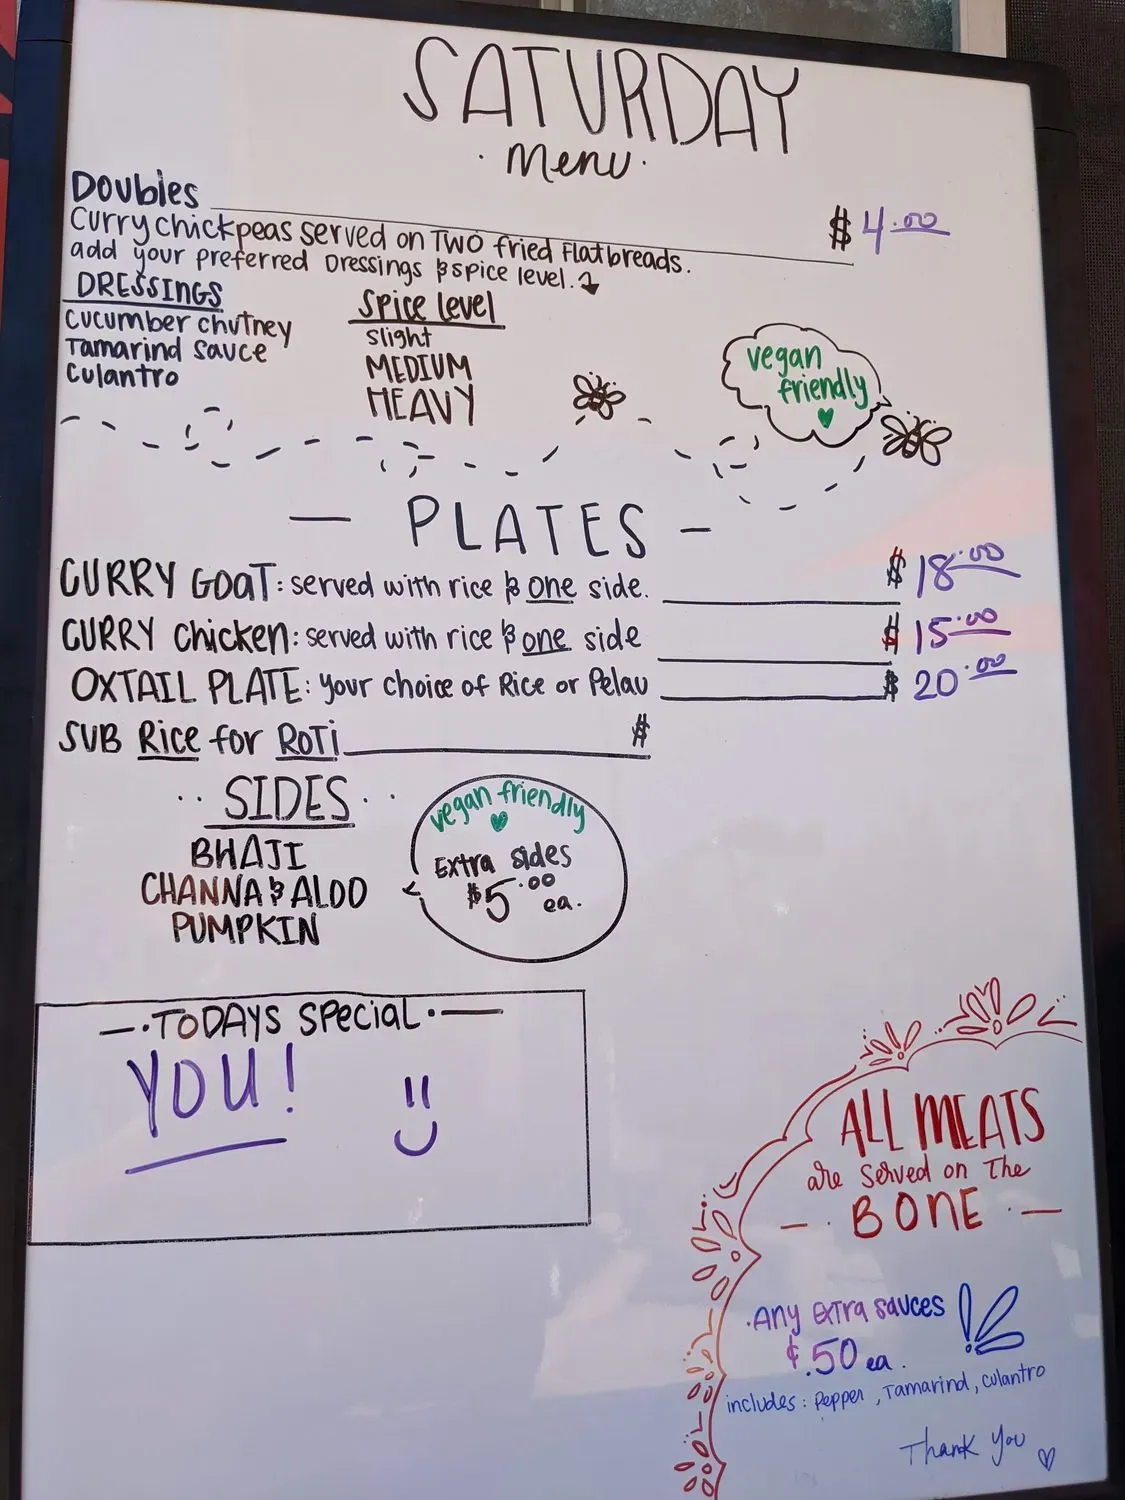 SATURDAY
· Menu ·
Doubles $ 4.00
Curry chickpeas served on TWO fried Flatbreads.
add your preferred Dressings & spice level.
DRESSINGS
cucumber chutney
Tamarind sauce
Culantro
Spice level
slight
MEDIUM
HEAVY
vegan
friendly
— PLATES —
CURRY GOAT: served with rice & one side. $ 18.00
CURRY Chicken: served with rice & one side $ 15.00
OXTAIL PLATE: your choice of Rice or Pelau $ 20.00
SUB Rice for ROTi $
·· SIDES ··
BHAJI
CHANNA & ALOO
PUMPKIN
vegan friendly
Extra sides
$5.00
ea.
—·TODAYS SPECIAL·—
YOU!
ALL MEATS
are served on The
— · BONE · —
·Any extra sauces
¢.50 ea.
includes: Pepper, Tamarind, culantro
Thank You